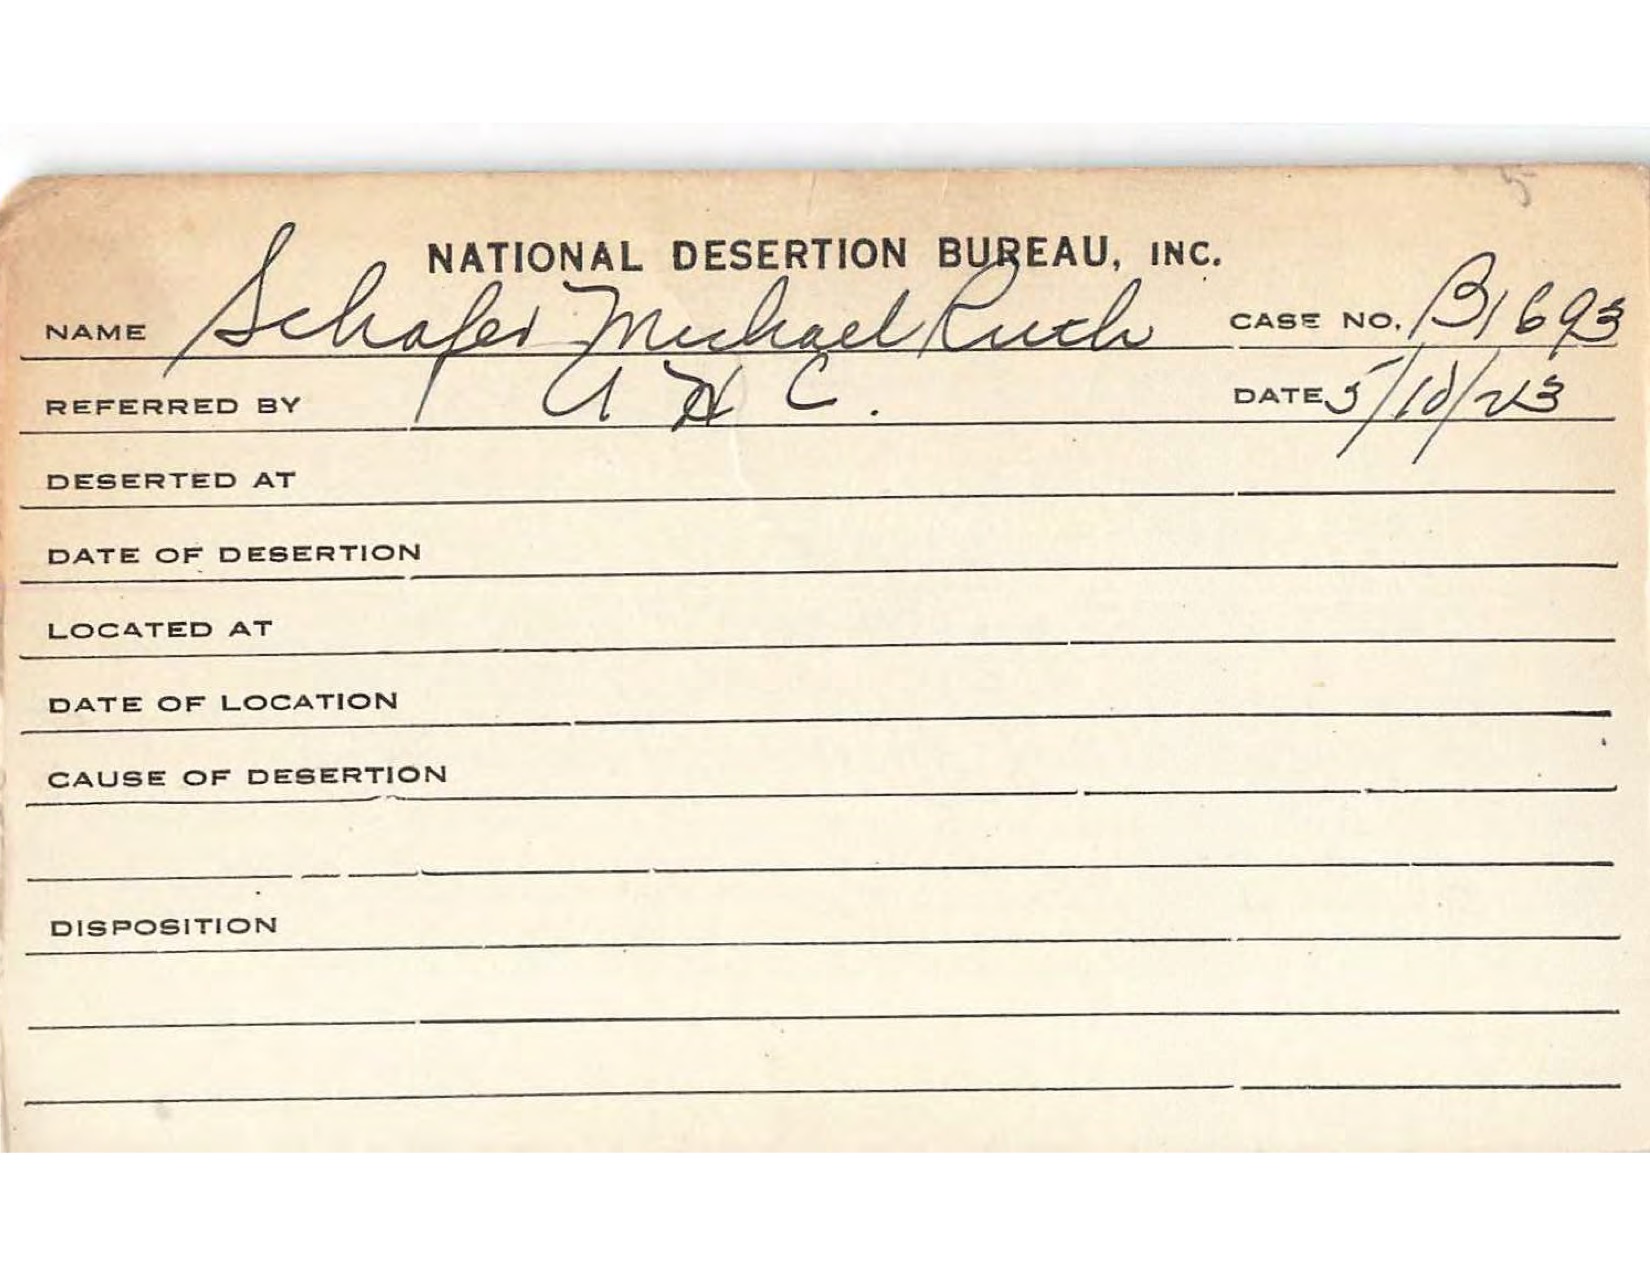 5
NATIONAL DESERTION BUREAU, INC.
NAME Schafer Michael Ruth CASE NO. B1693
REFERRED BY U H C. DATE 5/10/23
DESERTED AT
DATE OF DESERTION
LOCATED AT
DATE OF LOCATION
CAUSE OF DESERTION
DISPOSITION